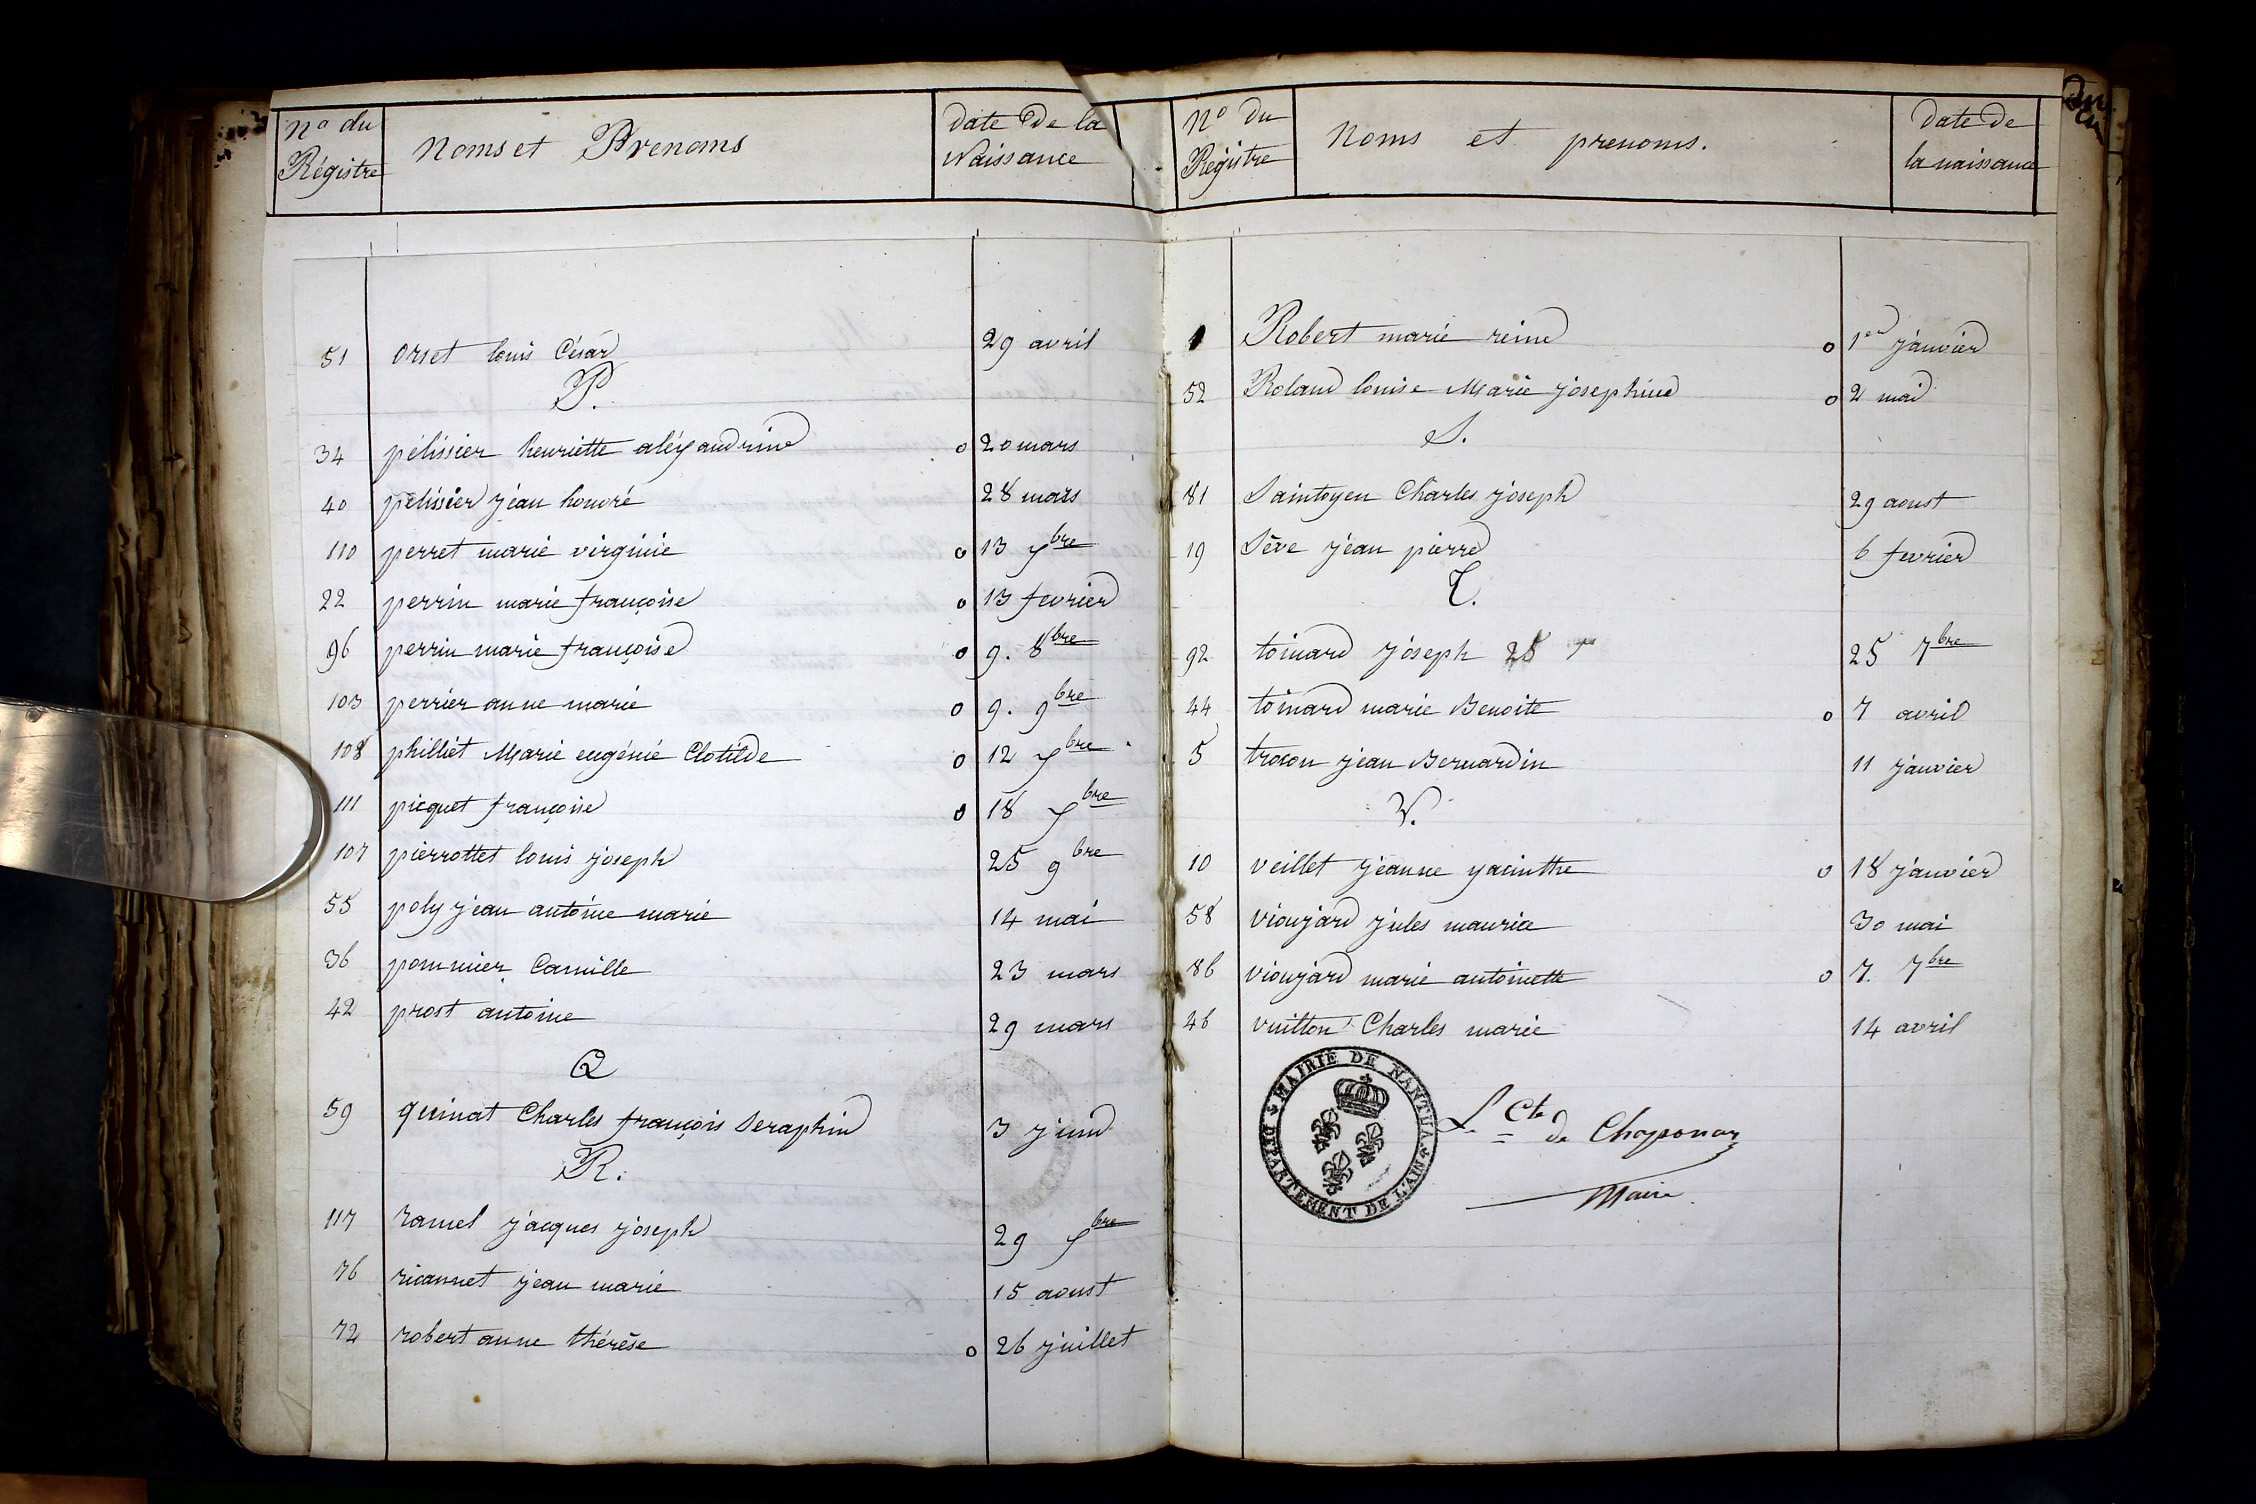 No du Régistre Noms et Prenoms date de la Naissance
51 orset louis César 29 avril
P.
34 pélissier henriette aléxandrine o 20 mars
40 pelissier jéan honoré 28 mars
110 perret marie virginie o 13 xbre
22 perrin marie françoise o 13 fevrier
96 perrin marie françoise o 9. 8bre
103 perrier anne marie o 9. 9bre
108 philliét Marie eugénie Clotilde o 12 xbre
111 picquet françoise o 18 xbre
107 pierrottet louis joseph 25 9bre
55 poly jean antoine marie 14 mai
36 pommier Camille 23 mars
42 prost antoine 29 mars
Q
59 quinat Charles françois Seraphin 3 juin
R.
117 ramel jacques joseph 29 xbre
76 ricannet jean marie 15 aoust
72 robert anne thérèse o 26 juillet
No du Registre Noms et prenoms. date de la naissance
1 Robert marie reine o 1er janvier
52 Roland louise Marie josephine o 2 mai
S.
81 Saintoyen Charles joseph 29 aoust
19 Sève jean pierre 6 fevrier
T.
92 toinard joseph 25 7bre
44 toinard marie Benoite o 7 avril
5 trocon jean Bernardin 11 janvier
V.
10 veillet jeanne yacinthe o 18 janvier
58 vioujard jules maurice 30 mai
86 vioujard marie antoinette o 7. 7bre
46 vuitton Charles marie 14 avril
MAIRIE DE NANTUA DÉPARTEMENT DE L'AIN
L. Cte de Chaponay
Maire.